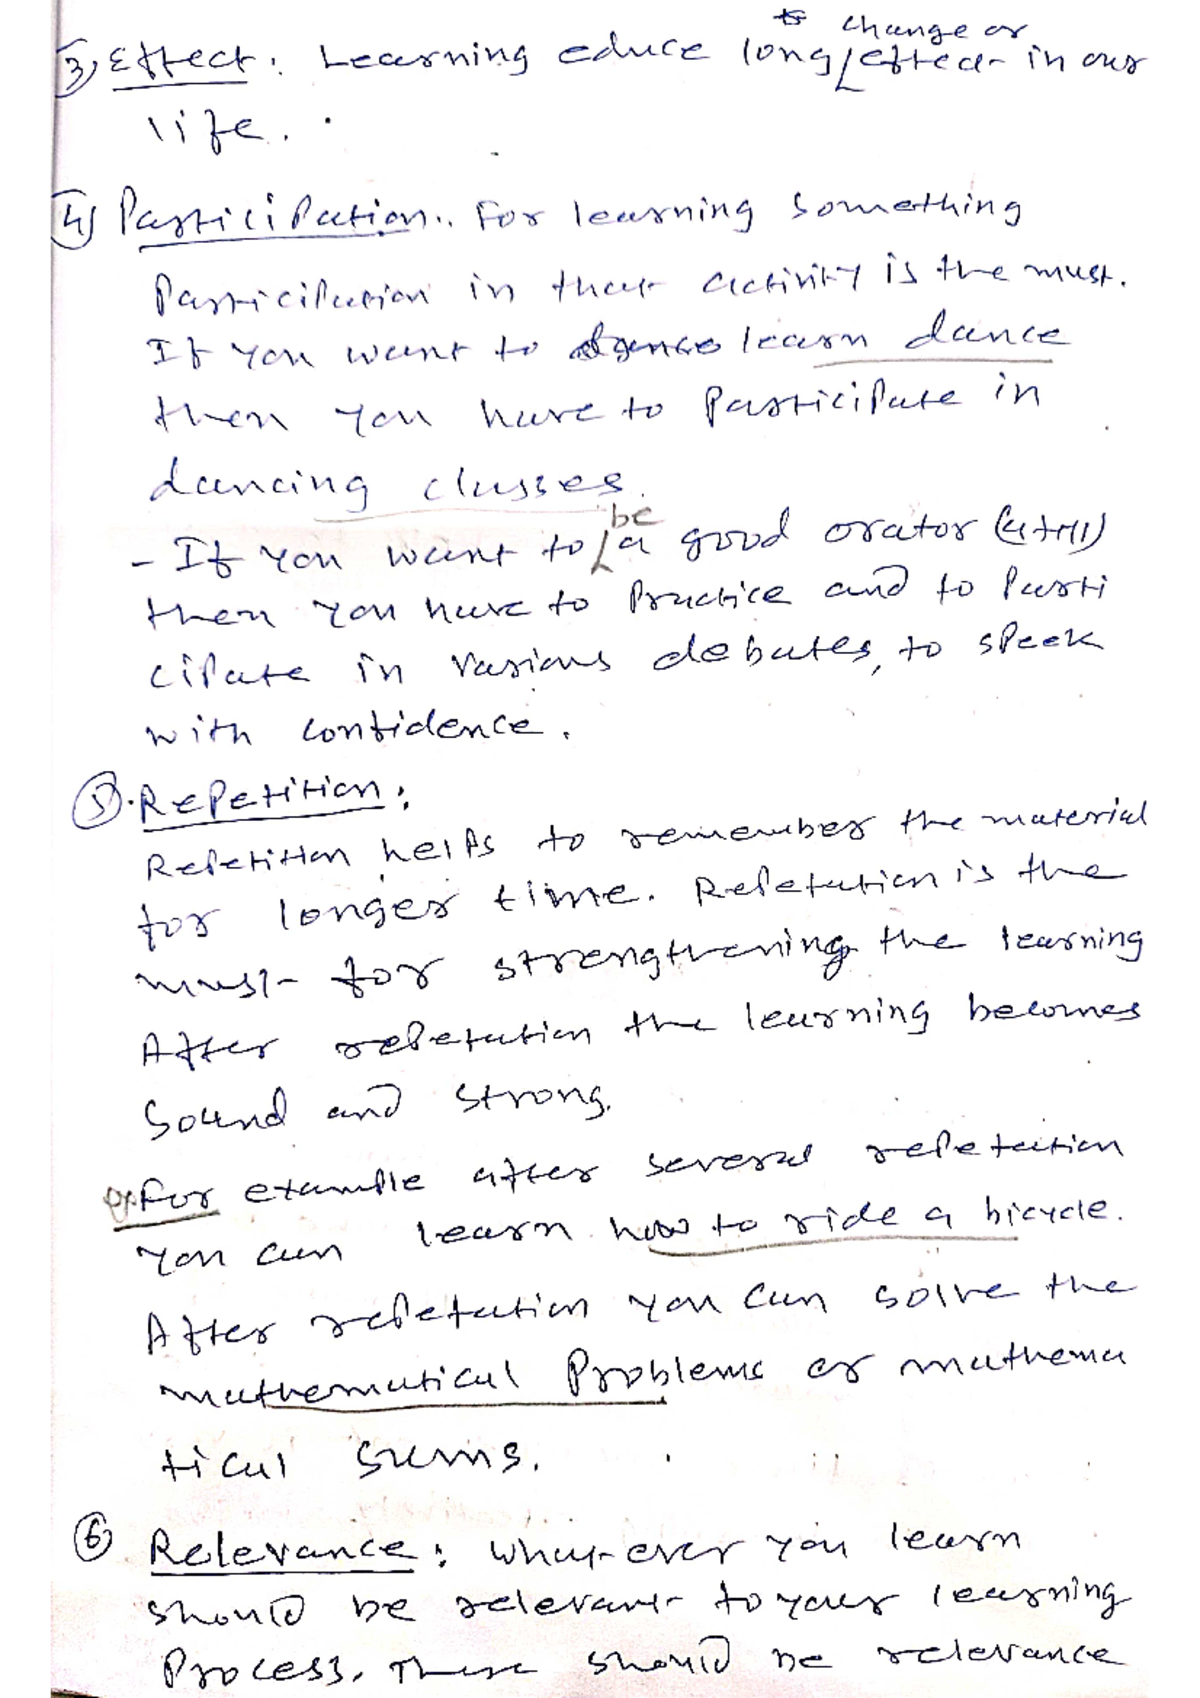 change or
3) Effect: Learning educe long effect in our
life.
4) Participation.. For learning something
Participation in that activity is the must.
If you want to learn dance
then you have to participate in
dancing classes.
be
- If you want to a good orator (वक्ता)
then you have to practice and to parti
cipate in various debates, to speek
with confidence.
5. Repetition:
Repetition helps to remember the material
for longer time. Repetation is the
must for strengthening the learning
After repetation the learning becomes
Sound and strong.
ex For example after several repetation
you can learn how to ride a bicycle.
After repetation you can solve the
mathematical Problems or mathema
tical sums.
6 Relevance: What-ever you learn
should be relevant to your learning
Process. There should be relevance